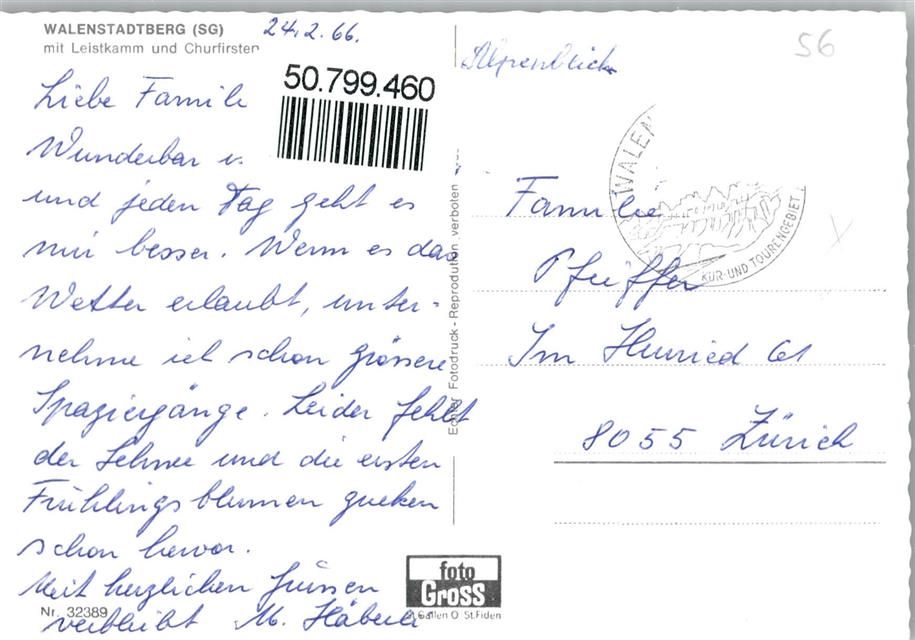 WALENSTADTBERG (SG)
mit Leistkamm und Churfirsten
24.2.66.
50.799.460
Liebe Famili
Wunderbar
und jeden Tag geht es
mir besser. Wenn es das
Wetter erlaubt, unter-
nehme ich schon grössere
Spaziergänge. Leider fehlt
der Schnee und die ersten
Frühlingsblumen gucken
schon hervor.
Mit herzlichen Grüssen
verbleibt M. Häberli
Nr. 32389
Echter Fotodruck - Reprodution verboten
foto
GROSS
St. Gallen O St. Fiden
Alpenblick
56
WALEN
KUR- UND TOURENGEBIET
Familie
Pfeiffer
Im Heuried 61
8055 Zürich